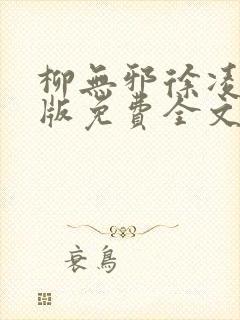 柳無邪徐凌
版免費全文
衰鳥